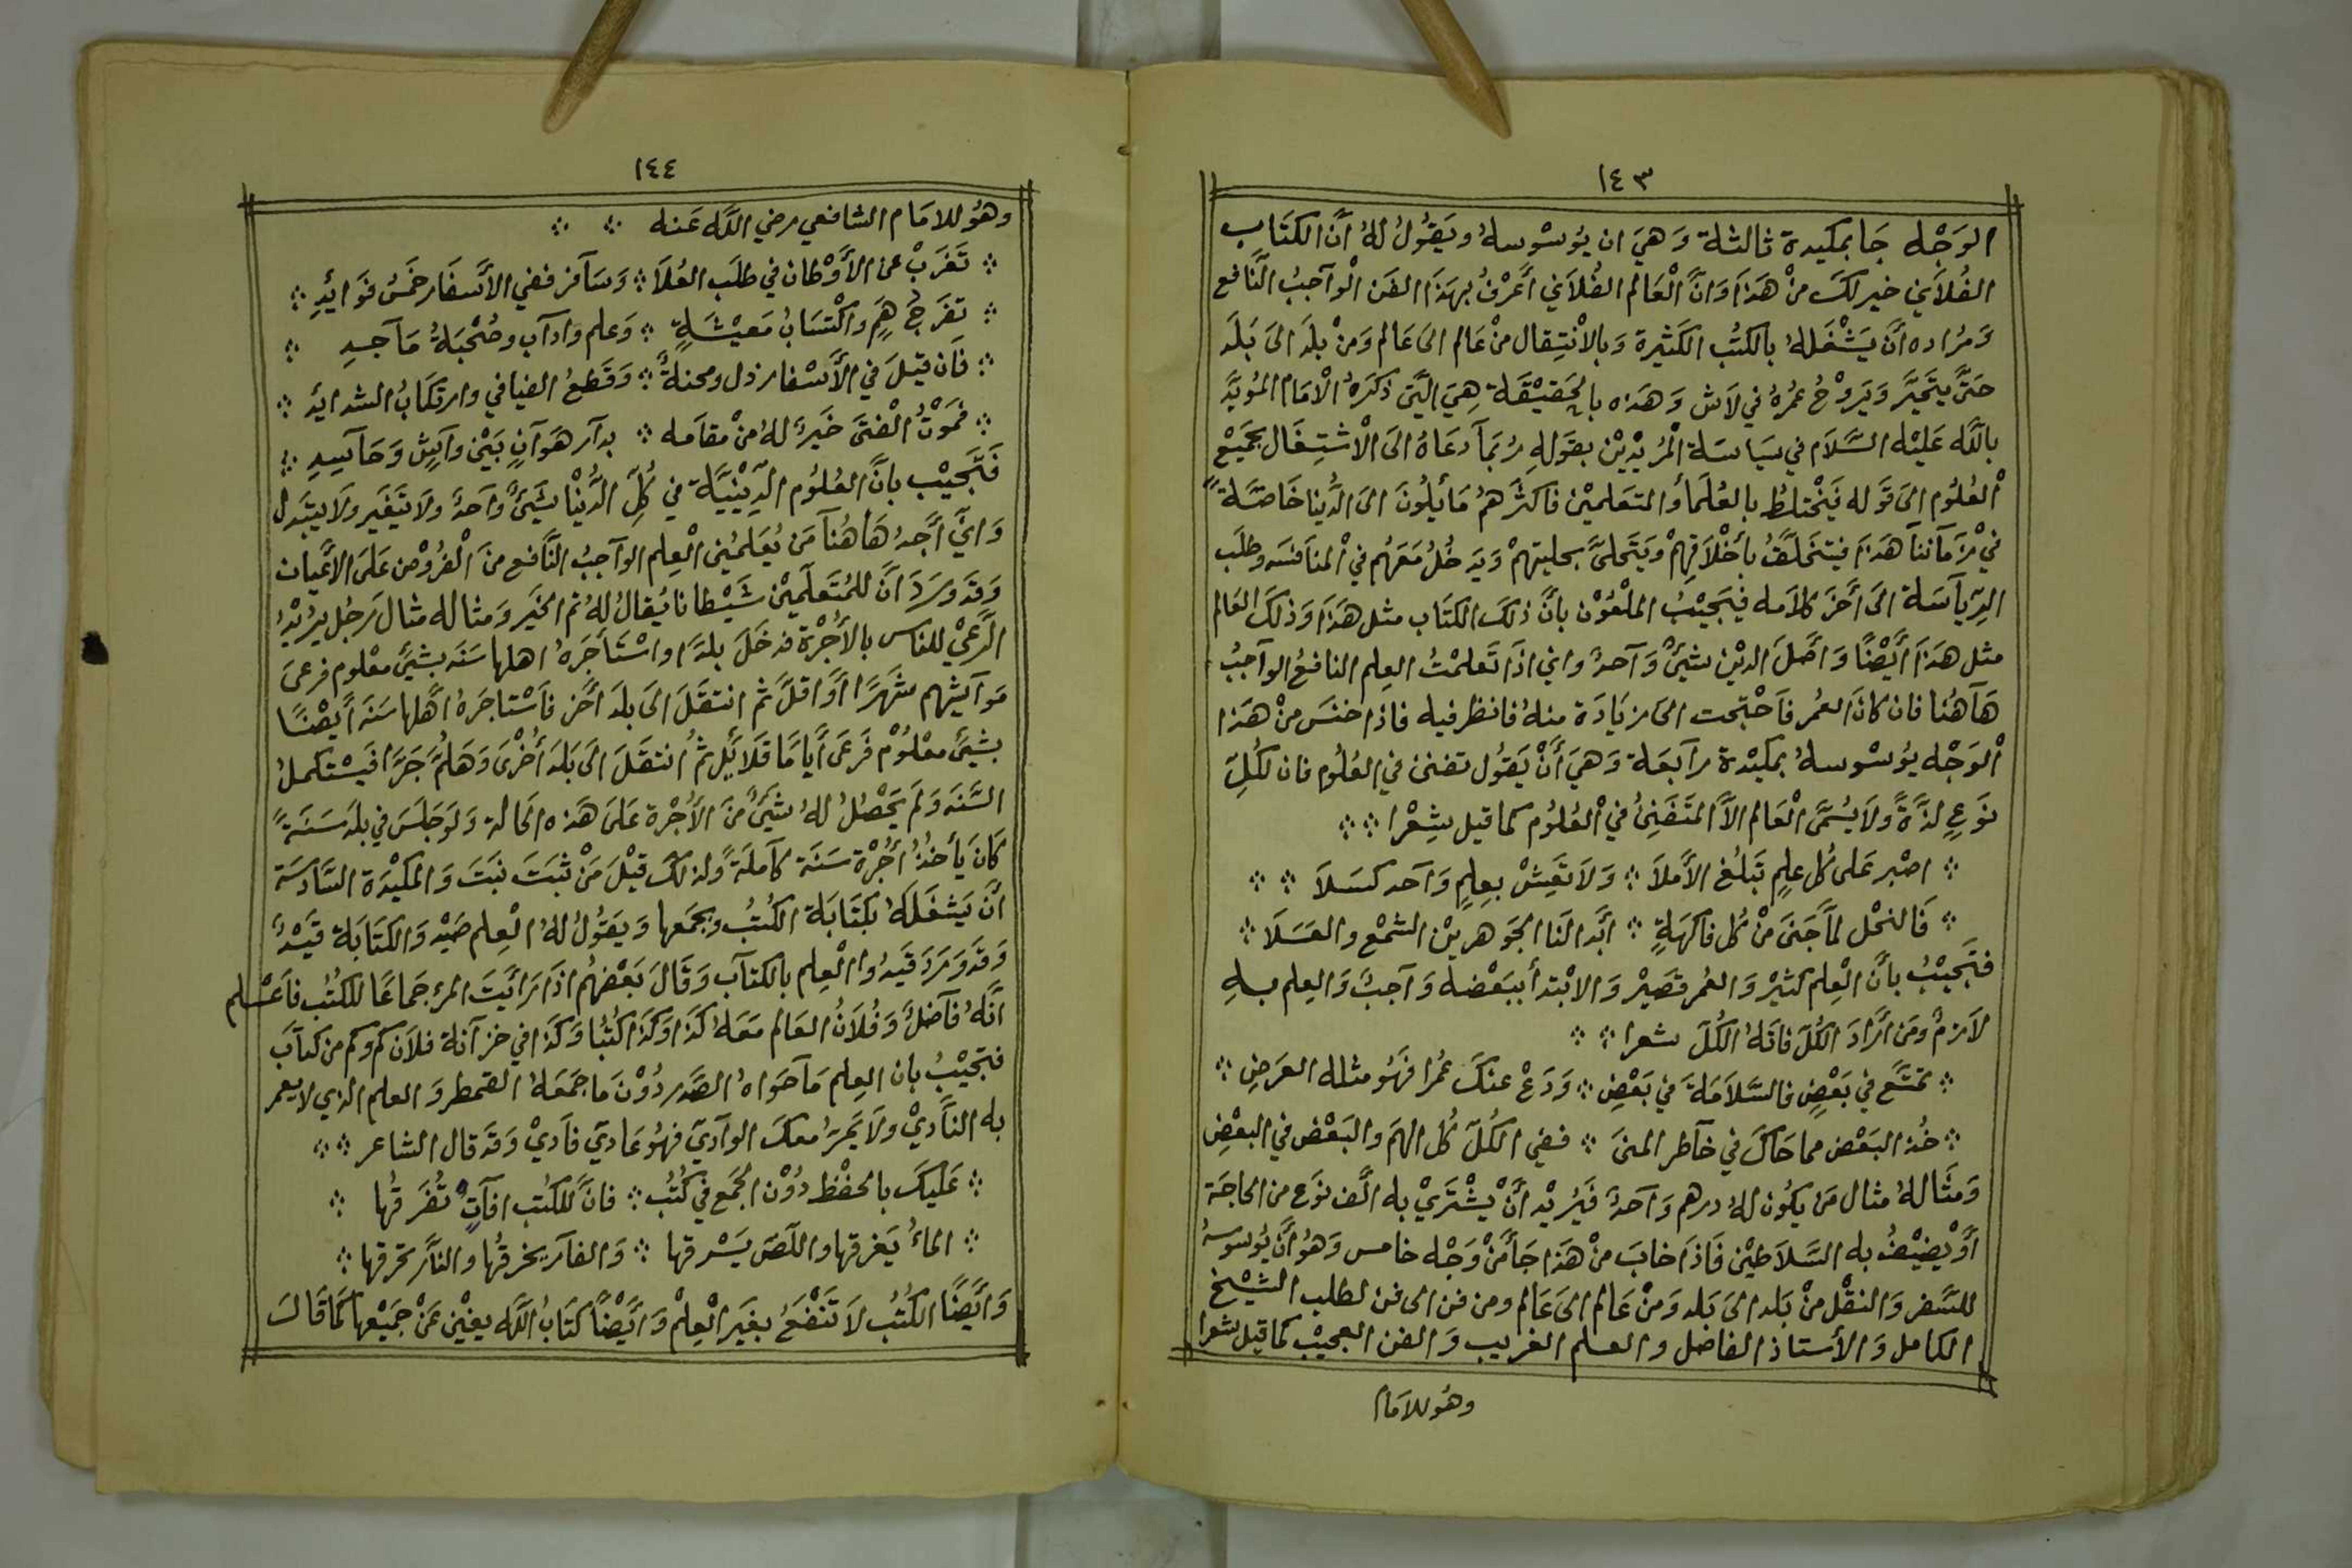 ١٤٣
الوَجْه جَا بمكيدة ثالثة وَهيَ ان يُوسْوسهُ ويَقُولُ لهُ انَّ الكتَاب
الفُلاَني خير لكَ منْ هَذا وَانَّ الْعَالم الفُلاَني أعَرْفُ بهَذا الفَن الْوآجبُ النَّافع
وَمُراده أنَّ يَشْغَلهُ بالكتُب الكَثيرة وَبالاْنْتِقال منْ عَالم الىَ عَالم وَمنْ بلَد الىَ بَلَد
حَتىَّ يتَحيَّر وَيَروْحُ عمُرهُ في لآش وَهَذه بالحَقيْقَة هِيَ الَّتى ذكَرهُ الاْمَام المُؤيَّد
باللَّه عَليْه السَّلاَم في سيَاسَة الْمرُيديْن بقَولهِ رُبمَآ دعَاهُ الىَ الاْشتِغَال بجَميْع
الْعُلوُم الىَ قَوله فيَخْتلطُ بالعُلمَا والمتعَلميْن فاكثَرهمُ مَائلُونَ الىَ الدُّنيا خَاصَّةً
فيْ زمَآننآ هَذا فيتخَلَّقُ بأخْلاَقهِمْ ويَتَحلىَّ بحليتهمْ وَيَدخُلُ مَعَهُم فيْ المنَافسَه وطلَب
الرِّيآسَة الىَ أخرَ كلاَمه فيَجيْبُ الملْعُوْن بانَّ ذلكَ الكتَاب مثل هَذا وَذلكَ العَالم
مثل هَذا أيْضًا وَاصْلَ الديْن شيئٌ وَآحدٌ واني اذَا تَعلمْتُ العِلم النافعُ الوآجبُ
هَآهُنا فان كانَ العمُر فآحْتجت الىَ زيَادَة منهُ فانظر فيه فاذا خنسَ منْ هَذا
الْوَجْه يوُسْوسهُ بمكيْدة رآبعَة وَهيَ أنْ يقَوُل تفنن في العُلوُم فان لكُلِّ
نوَعٍ لذَّةً وَلاَ يسُمَّى الْعَالم الاَّ المتَفَننُ فيْ الْعُلوُم كما قيل شِعْرا
اصْبر عَلى كُل علمٍ تَبلُغ الأمَلاَ وَلاَ تعَيِشْ بعِلمٍ وَآحد كسَلاَ
فَالنحْل لمَّا جَنىَ منْ كُل فاكهَةٍ ابَّدا لنَا الجَوهريْن الشمْع والعَسَلاَ
فتَجيْبُ بأنَّ الْعِلم كثيْر وَالعُمر قصَيْر وَالابْتدأ ببَعْضه وَآجبٌ وَالعِلم بهِ
لاَزمٌ ومَن ارَّادَ الكُلَ فاتَهُ الكُلَ شعرا
تمتَّع في بَعْضٍ فالسَّلاَمَةَ في بَعْضٍ وَدَعْ عنكَ عمُرا فهَوُ مثله العَرضِ
خُذ البَعْض مما حَاكَ في خآطر المنىَ ففي الكُلّ كُل الهمَ والبَعْض في البعْضِ
وَمثَالهُ مثال مَن يكُون لهُ درهم وَآحدٌ فيَرُيْد انَّ يْشْتَريْ به الَّف نوَع من الحَاجَة
أوَّ يُضيْفُ به السَّلاَطيْن فَاذَا خابَ منْ هَذا جَأ منْ وَجْه خامس وَهوُ أنَّ يُوسوسهُ
للسَّفر وَالنقْل منْ بَلد الىَ بَلد وَمنْ عَالم الىَ عَالم ومن فن الى فن لطلب الشيْخ
الكامل وَالأستاذ الفاضل والعلم الغريب وَالفن العجيْب كما قيل شعرا
وهُو للامَام
١٤٤
وهوُ للامَام الشافعي رضي اللَّه عَنه
تَغَربْ عن الأَوْطان في طلَب العُلاَ وَسَآفر ففي الأسفَار خَمسُ فوَائدِ
تفرجُ هَمٍ واكْتسَابُ مَعيْشَةٍ وَعلم وادآب وصُحْبَةُ مَآجدِ
فَان قيلَ في الأسْفار ذل ومحنةٌ وَقَطعُ الفيافي وارتكَابُ الشدائد
فَموْتُ الْفتىَ خَيرٌ لهُ منْ مقاَمه بدآر هوَآنٍ بَيْن وآشٍ وَحَآسِدِ
فَتَجيْب بأنَّ العُلوُم الدِّيْنيَّة في كُلّ الدُّنْيا شَيئٌ وآحدٌ ولاَ تتغَير وَلاَ يتبَدل
وَاني أجدُ هَاهُنآ مَن يُعَلمُني الْعِلم الوآجبُ النَّافع منَ الْفروُض عَلىَ الأعْيان
وَقدَ ورَدَ انَّ للمُتَعلميْن شَيْطانا يُقالُ لهُ ثم الخيَر وَمثاله مثال رَجُل يرُيدُ
الرَّعيْ للناس بالأُجْرة فدخَلَ بلدًا واسْتَأجَرهُ اهلها سَنَه بشيئٍ معْلوم فرعىَ
موَآشيهم شَهرًا أوَّ اقلَّ ثمَ انتقَلَ الىَ بلدَ أخَر فآسْتاجَرهُ أهَّلها سَنَه أيْضًا
بشَيئٍ معْلوُم فَرعىَ أيامًا قلاَئل ثمُ انتقَلَ الىَ بَلدَ أخُرْىَ وَهَلُمَّ جَرَّا فيَسْتكملُ
السَّنَه وَلمَ يَحْصُلُ لهُ شيئٌ منَ الأُجْرة عَلىَ هَذه الحَالة وَلوَ جَلَسَ في بلدَ سَنَةً
كَانَ يأخُذُ أُجْرَة سَنَة كآملَةً ولذلكَ قيْلَ مَنْ ثبَتَ نبَتَ وَالمكيْدَة السَّادسَة
انَّ يَشغَلكَهُ بكتَابَة الكتُبُ وجمَعها وَيقَوُلُ لهُ الْعِلم صَيْد وَالكتَابَة قَيْدٌ
وَقَد وَرَدَ قَيدُوا الْعِلم بالكتآب وَقَالَ بَعْضهُم اذَا رَأيَتَ المرءِ جَمَاعًا للكتُب فآعْلم
انَّهُ فآضلٌ وَفُلاَنُ العَالم مَعَهُ كذَا وَكذَا كُتبًا وَكذَا في خزآنة فلاَن كم وكم من كتآب
فتجيْبُ بان العِلم مآحوَاهُ الصَّدر دُوْنَ ما جمَعَهُ القمطر وَالعلم الذي لا يعمر
به النَّاديْ ولاَ يَمرُ معكَ الوآديّ فهوُ عَاديّ فآديْ وَقدَ قال الشاعر
عَليكَ بالحفْظ دوُن الجَمع في كتُب فانَّ للكُتب آفاتٍ تُفَرقُها
الماءُ يَغرقها واللّصَ يَسْرقها وَالفآر يخرقُها والنآر تحَرقها
وَأيَّضًا الكتُبُ لاَ تَنْفَعُ بغيَر الْعِلمْ وَأيَّضْاً كتَابُ اللَّه يغْني عَنْ جميْعها كمَا قَالَ